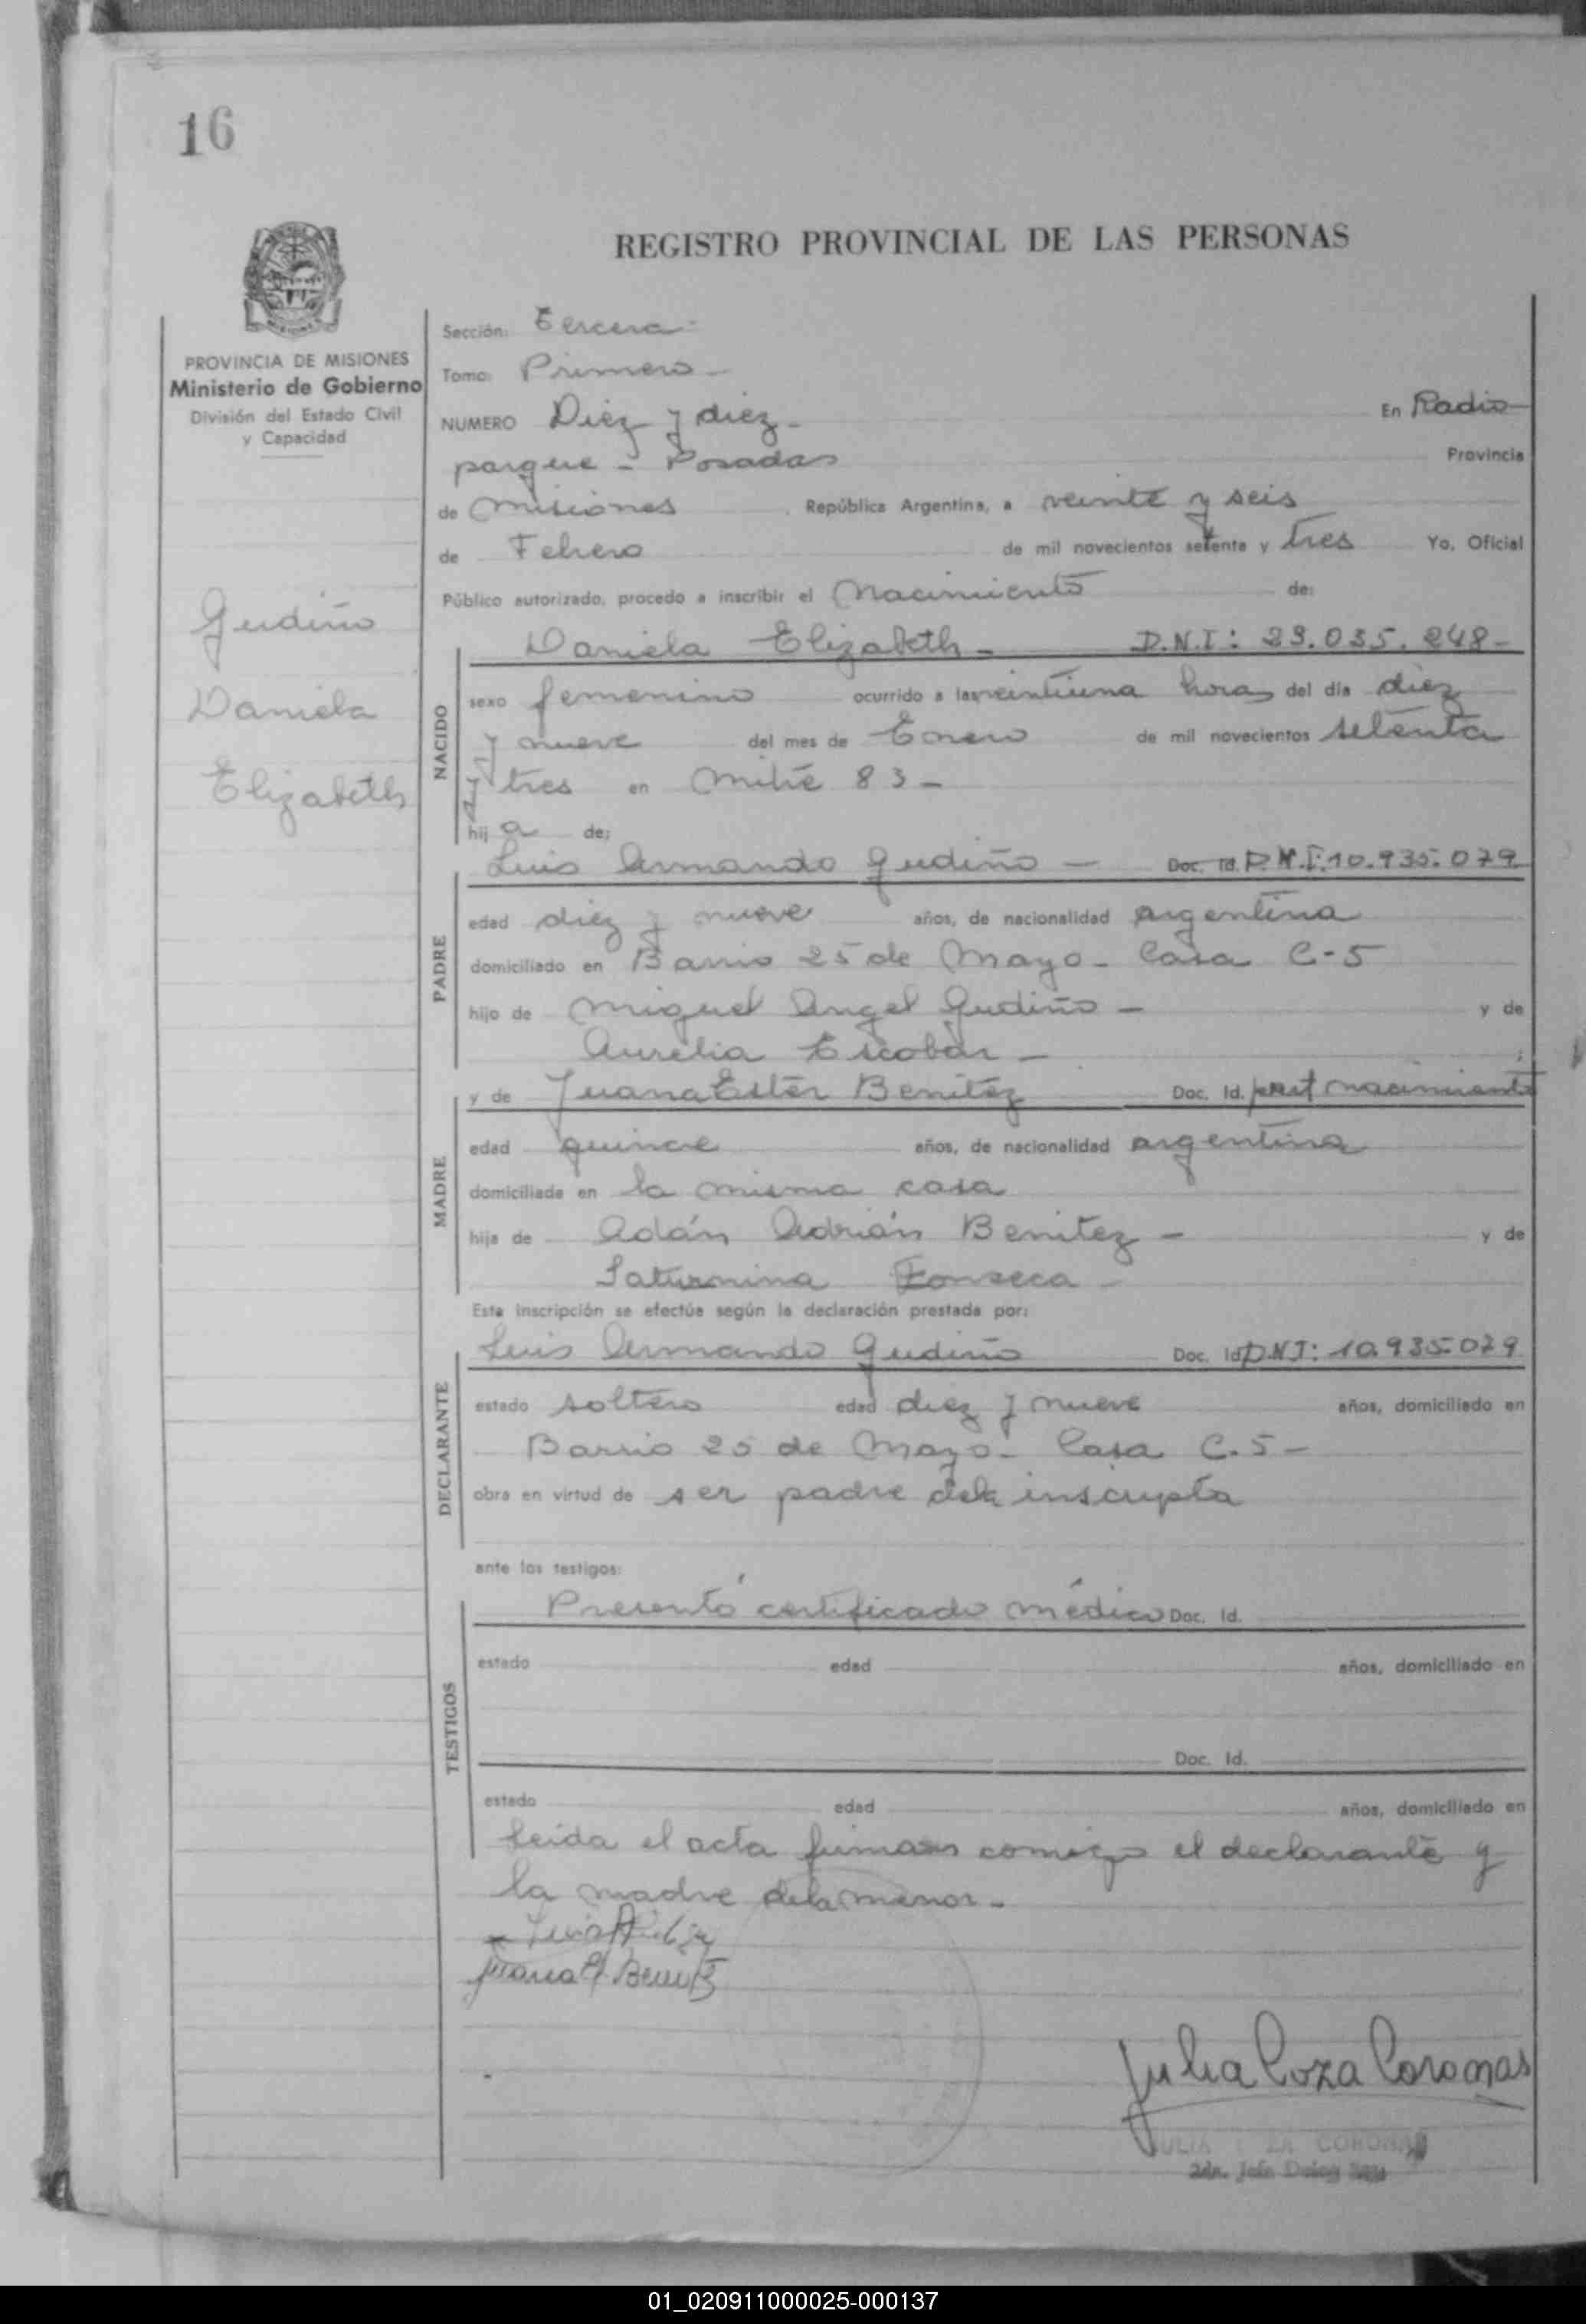 16
REGISTRO PROVINCIAL DE LAS PERSONAS
PROVINCIA DE MISIONES
Ministerio de Gobierno
División del Estado Civil
y Capacidad
Gudiño
Daniela
Elizabeth
Sección: Tercera
Tomo: Primero
NUMERO Diez y diez - En Radio
parque - Posadas Provincia
de Misiones República Argentina, a veinte y seis
de Febrero de mil novecientos setenta y tres Yo, Oficial
Público autorizado, procedo a inscribir el Nacimiento de:
NACIDO
Daniela Elizabeth - D.N.I: 23.035.248-
sexo femenino ocurrido a las veintiuna horas del día diez
y nueve del mes de Enero de mil novecientos setenta
y tres en Mitre 83 -
hija de:
PADRE
Luis Armando Gudiño - Doc. Id. D.N.I. 10.935.079
edad diez y nueve años, de nacionalidad argentina
domiciliado en Barrio 25 de Mayo - Casa C-5
hijo de Miguel Angel Gudiño - y de
Aurelia Escobar - ;
MADRE
y de Juana Ester Benitez Doc. Id. part nacimiento
edad quince años, de nacionalidad argentina
domiciliada en la misma casa
hija de Adán Adrián Benitez - y de
Saturnina Fonseca -
Esta inscripción se efectúa según la declaración prestada por:
DECLARANTE
Luis Armando Gudiño Doc. Id D.N.I: 10.935.079
estado soltero edad diez y nueve años, domiciliado en
Barrio 25 de Mayo - Casa C.5 -
obra en virtud de ser padre de la inscripta
ante los testigos:
TESTIGOS
Presentó certificado médico Doc. Id.
estado edad años, domiciliado en
Doc. Id.
estado edad años, domiciliado en
Leida el acta firman comigo el declarante y
la madre de la menor -
Juana E. Benitez
Julia Coza Coromas
01_020911000025-000137